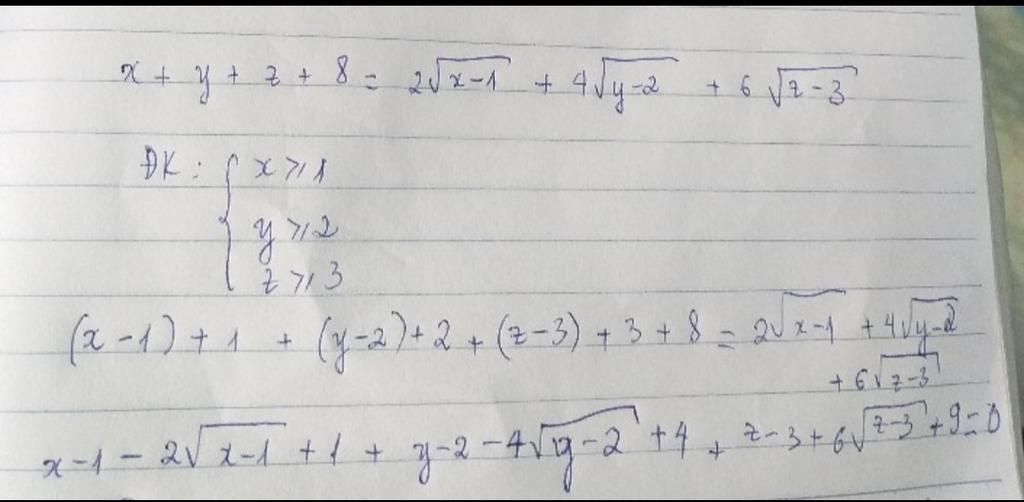 x + y + z + 8 = 2√(x-1) + 4√(y-2) + 6√(z-3)
ĐK: { x ≥ 1
y ≥ 2
z ≥ 3
(x-1) + 1 + (y-2) + 2 + (z-3) + 3 + 8 = 2√(x-1) + 4√(y-2)
+ 6√(z-3)
x-1 - 2√(x-1) + 1 + y-2 - 4√(y-2) + 4 + z-3 + 6√(z-3) + 9 = 0